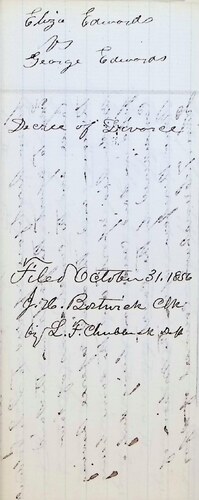 Eliza Edwards
vs
George Edwards
Decree of Divorce
Filed October 31. 1856
J. H. Bostwick Clk
by L. F. Chubbuck